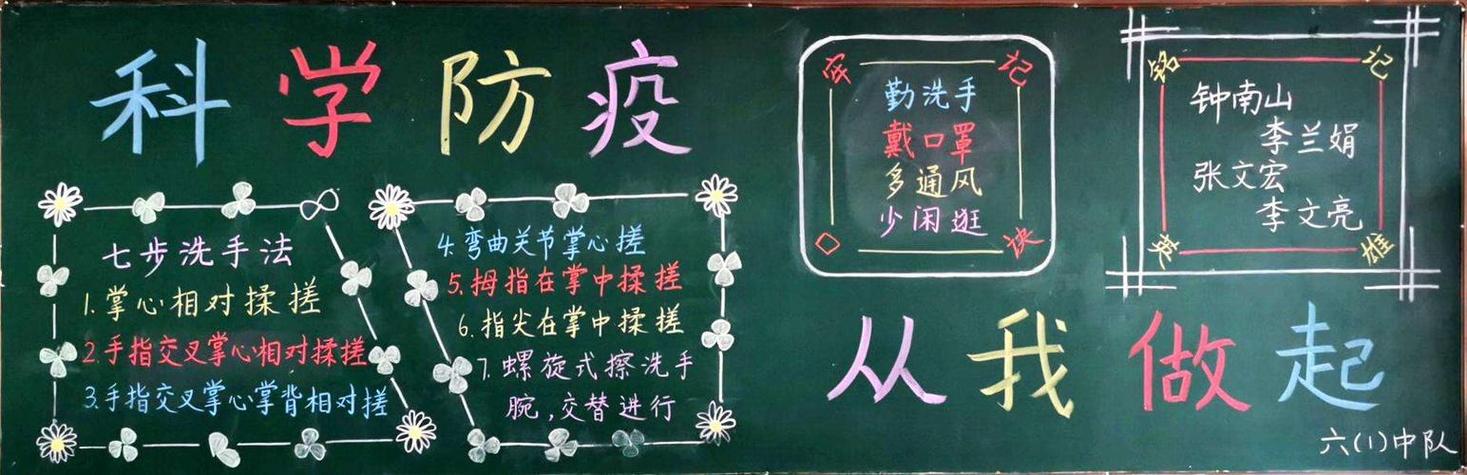 科学防疫
七步洗手法
1.掌心相对揉搓
2.手指交叉掌心相对揉搓
3.手指交叉掌心掌背相对搓
4.弯曲关节掌心搓
5.拇指在掌中揉搓
6.指尖在掌中揉搓
7.螺旋式擦洗手
腕,交替进行
牢记
勤洗手
戴口罩
多通风
少闲逛
口诀
铭记
钟南山
李兰娟
张文宏
李文亮
英雄
从我做起
六(1)中队